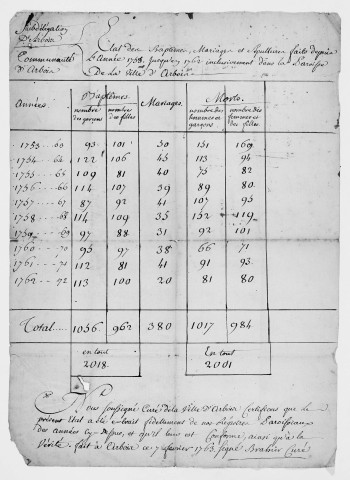 Subdélégation
D'Arbois
Communauté
d'Arbois
Etat des Baptêmes, Mariages et Sepultures faits depuis
L'année 1753 jusqu'en 1762 inclusivement dans la Paroisse
De la Ville d'Arbois
Années Baptêmes Mariages Morts
nombre des garçons nombre des filles nombre des hommes et garçons nombre des femmes et des filles
1753 63 93 101 30 151 169
1754 64 122 106 45 113 94
1755 65 109 81 40 75 82
1756 66 114 107 39 89 80
1757 67 87 92 41 107 95
1758 68 114 109 35 152 119
1759 69 97 88 51 92 101
1760 70 95 97 38 66 71
1761 71 112 81 41 91 93
1762 72 113 100 20 81 80
Total 1056 962 380 1017 984
en tout
2018
En tout
2001
Nous soussigné Curé de la Ville d'Arbois Certifions que le
présent Etat a été extrait fidellement de nos Registres Paroissiaux
des années cy-dessus, et qu'il leur est Conforme, ainsi qu'à la
Vérité. fait à Arbois ce 7 fevrier 1763 signé Curé